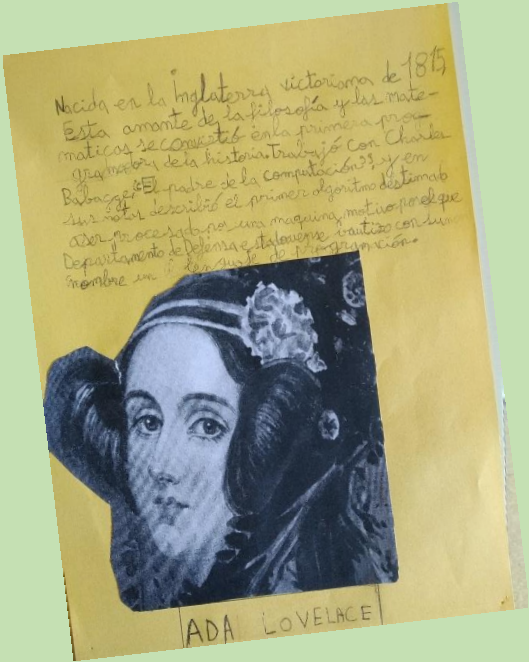 Nacida en la Inglaterra victoriana de 1815
Esta amante de la filosofía y las mate-
maticas se convirtió en la primera pro-
gramadora de la historia. Trabajó con Charles
Babagge, "El padre de la computación", y en
sus notas describió el primer algoritmo destinado
a ser procesado por una maquina, motivo por el que
Departamento de Defensa estadounense bautizo con su
nombre un lenguaje de programación.
ADA LOVELACE